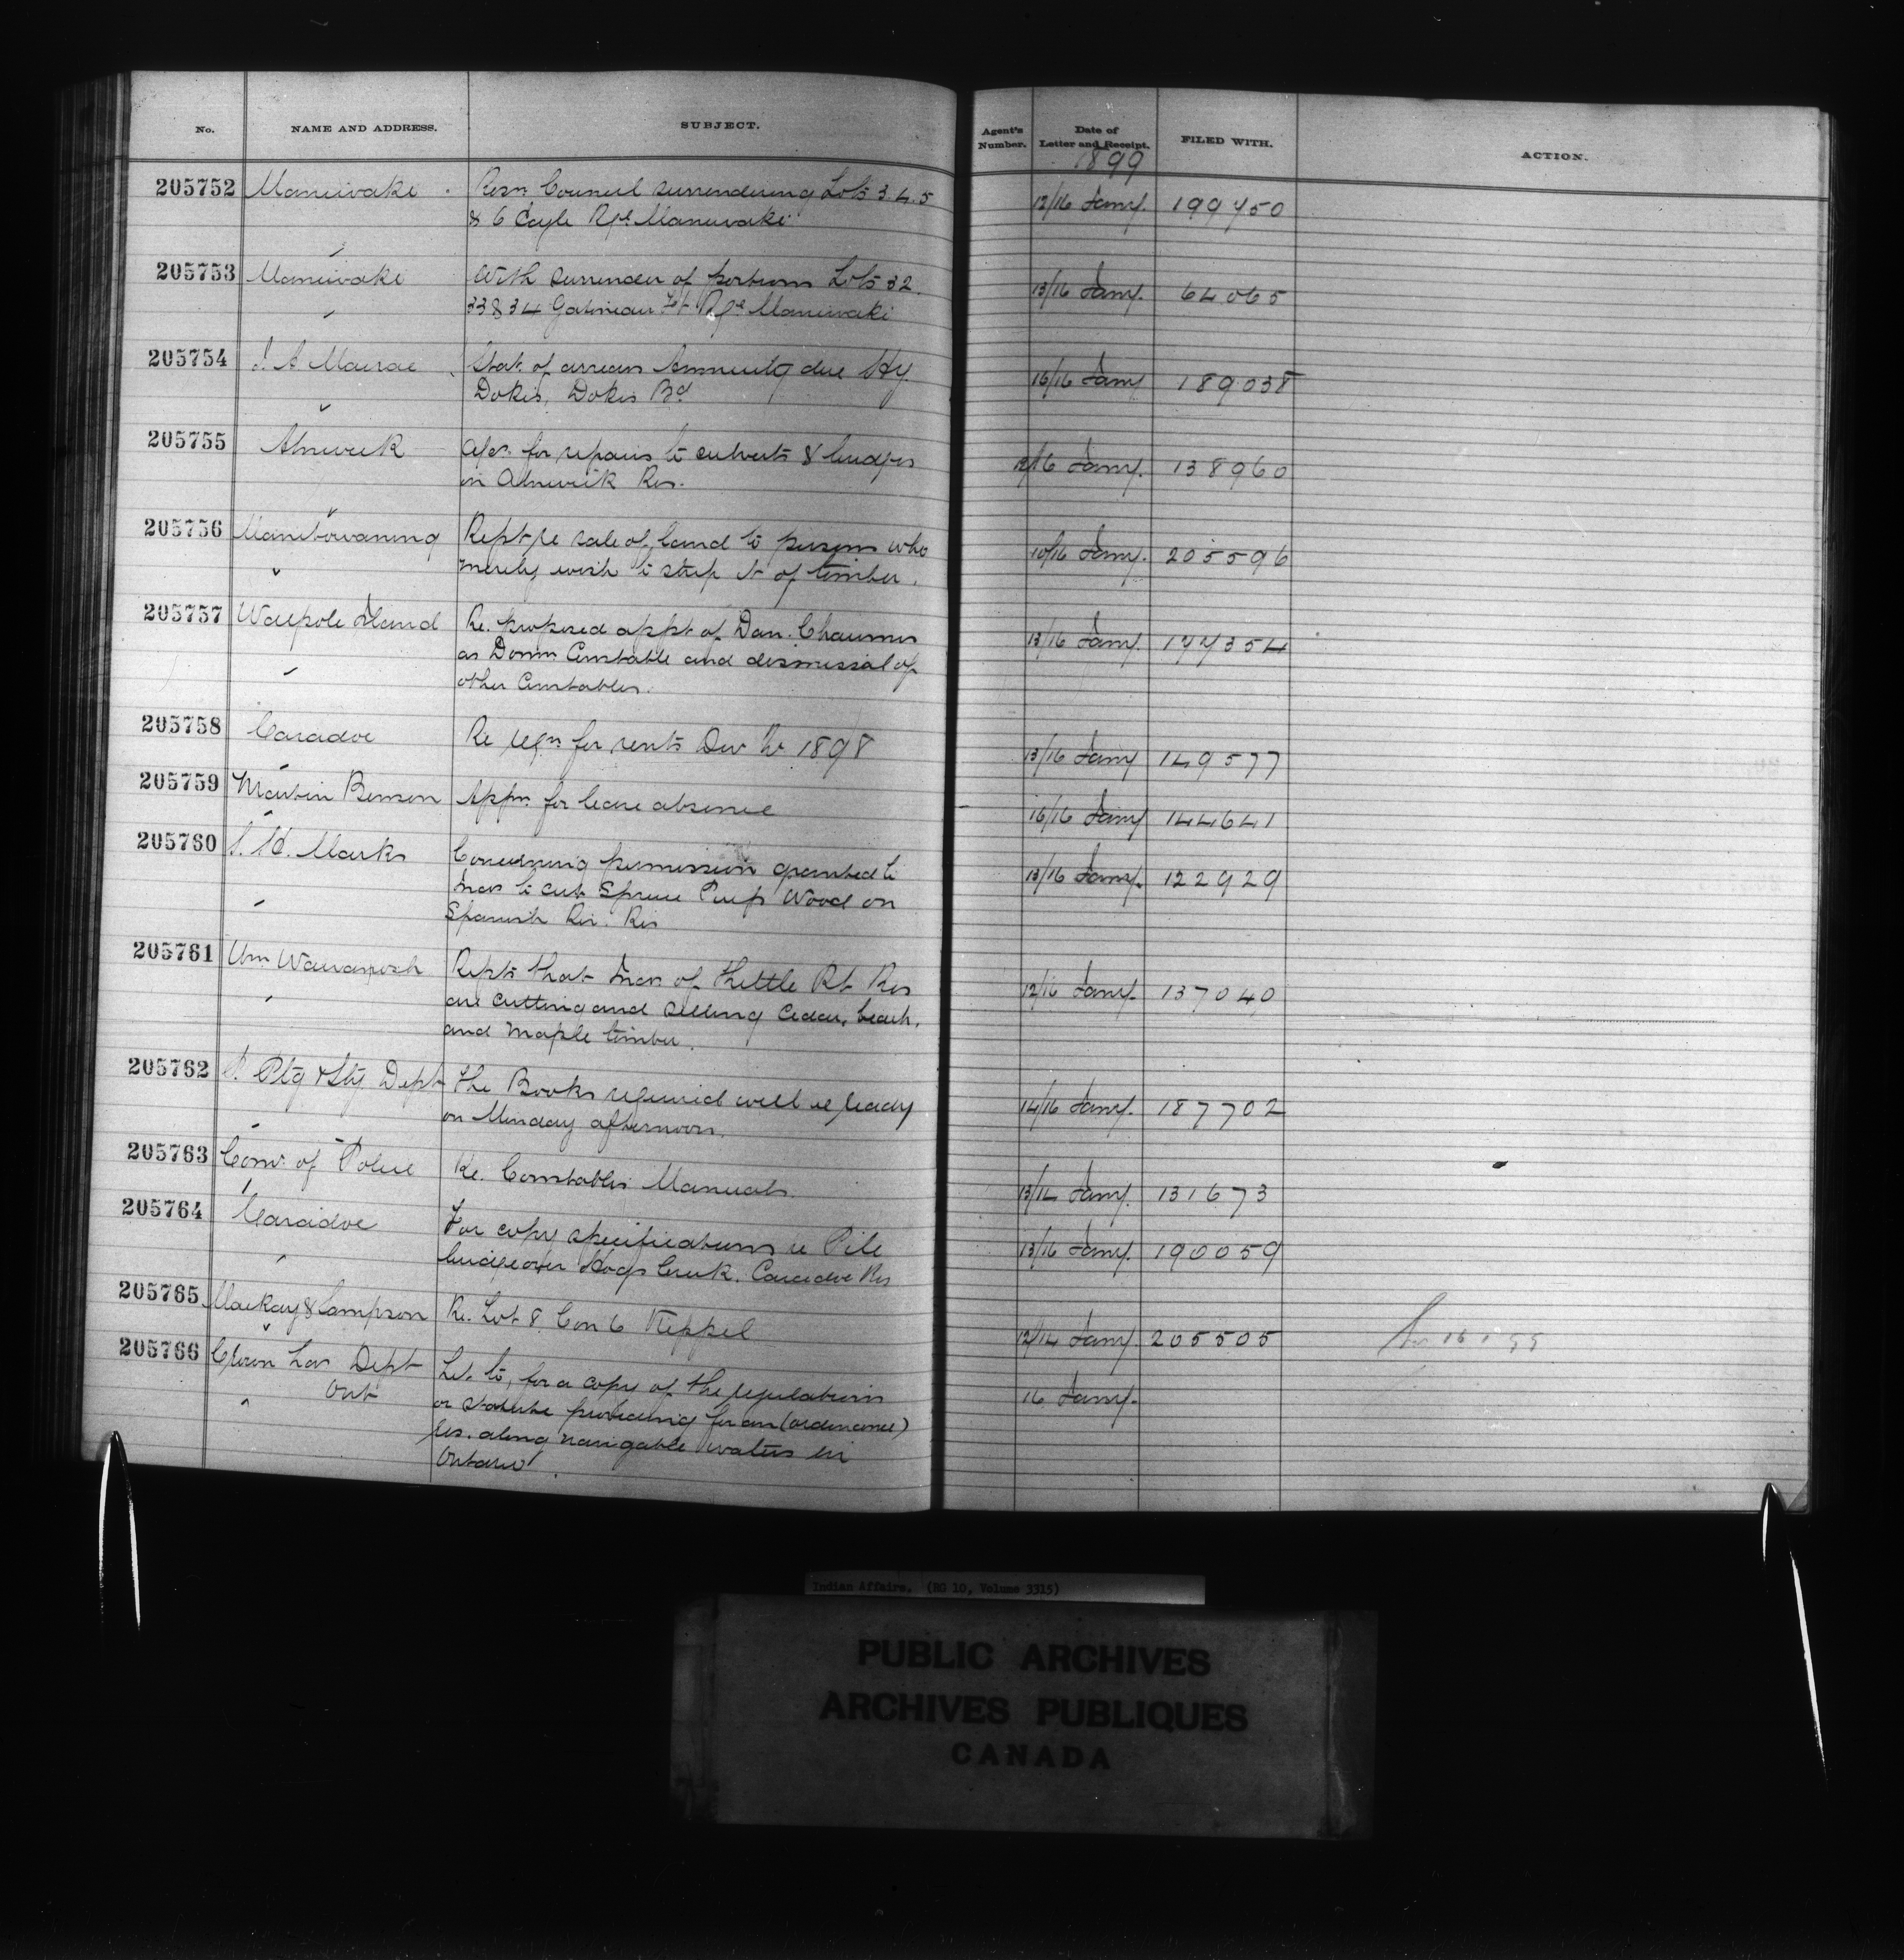 No. NAME AND ADDRESS. SUBJECT. Agent's Number. Date of Letter and Receipt. FILED WITH. ACTION.
1899
205752 Maniwaki Resn Council surrendering Lots 3.4.5 12/16 Jany. 199750
& 6 Eagle Rge Maniwaki
205753 Maniwaki With surrender of portions Lots 32. 13/16 Jany. 64065
33 & 34 Gatineau Ft Rge Maniwaki
205754 J. A Macrae Stat. of arrears Annuity due Hy. 16/16 Jany 189038
Dokis, Dokis Bd
205755 Alnwick for repairs to culverts & bridges 12/16 Jany. 138960
in Alnwick Res.
205756 Manitowaning Rept re sale of land to persons who 10/16 Jany. 205596
merely wish to strip it of timber.
205757 Walpole Island Re. proposed appt of Dan. 13/16 Jany. 177354
as Domn Constable and dismissal of
other Constables.
205758 Caradoc Re reqn for rents Dec Qr 1898 13/16 Jany 149577
205759 Martin Benson Appn. for leave absence 16/16 Jany 144641
205760 S. H. Marks Concerning permission granted to 13/16 Jany. 122929
Inds to cut Spruce Pulp Wood on
Spanish Riv. Res
205761 Wm Wawanosh Repts that Inds of Kettle Pt Res 12/16 Jany. 137040
are cutting and selling Cedar, beech,
and maple timber.
205762 Ptg & Sty Dept The Books required will be ready 14/16 Jany. 187702
on Monday afternoon.
205763 Comr of Police Re. Constables Manuals. 13/14 Jany. 131673
205764 Caradoc For copy specifications re Pile 13/16 Jany. 190059
bridge over Hogs Creek. Caradoc Res
205765 MacKay & Sampson Re. Lot 8. Con 6 Keppel 12/14 Jany. 205505
205766 Crown Lds Dept Let. to, for a copy of the regulations 16 Jany.
Ont or statute providing for an (ordinance)
res. along navigable waters in
Ontario.
Indian Affairs. (RG 10, Volume 3315)
PUBLIC ARCHIVES
ARCHIVES PUBLIQUES
CANADA